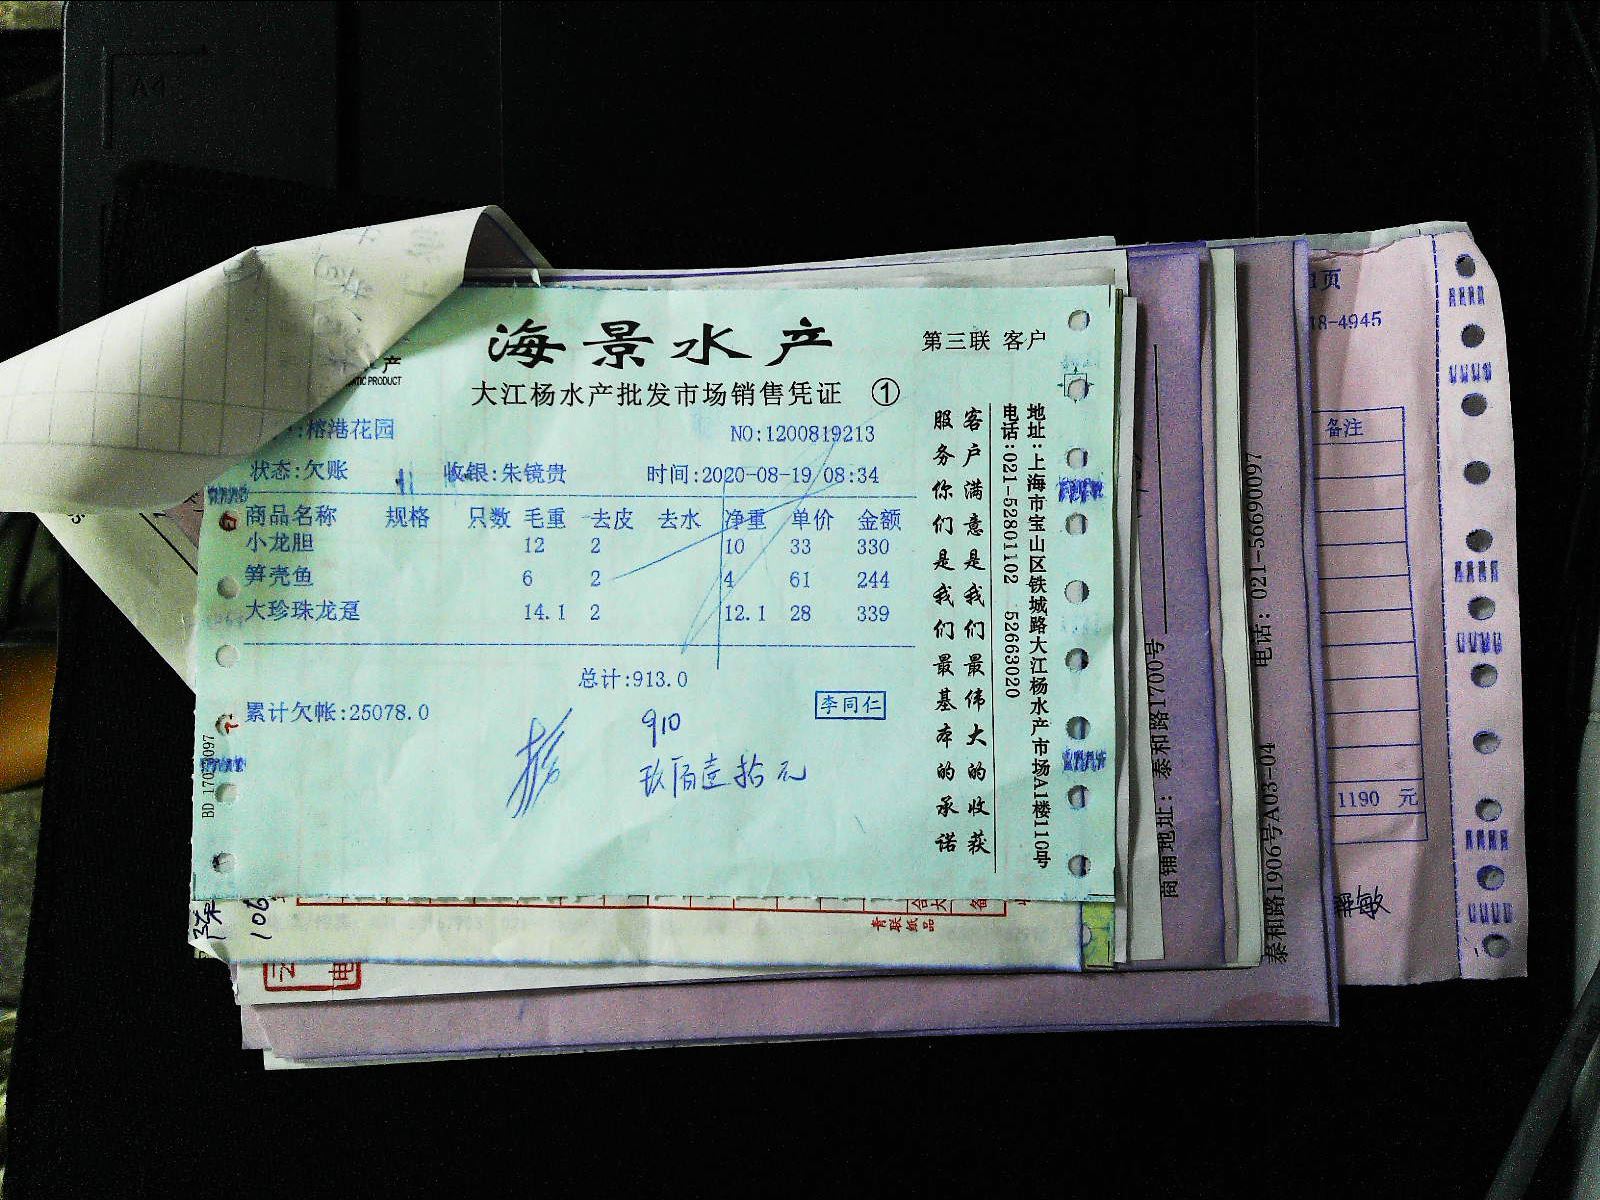 海景水产
第三联 客户
产
TIC PRODUCT
大江杨水产批发市场销售凭证 ①
:榕港花园
NO:1200819213
状态:欠账 收银:朱镜贵 时间:2020-08-19 08:34
商品名称 规格 只数 毛重 去皮 去水 净重 单价 金额
小龙胆 12 2 10 33 330
笋壳鱼 6 2 4 61 244
大珍珠龙趸 14.1 2 12.1 28 339
总计:913.0
累计欠帐:25078.0
李同仁
910
玖佰壹拾元
客户满意是我们最伟大的收获
服务你们是我们最基本的承诺
地址:上海市宝山区铁城路大江杨水产市场A1楼110号
电话:021-52801102 52663020
106
青联纸品
电
商铺地址: 泰和路1700号
电话: 021-56690097
泰和路1906号A03-04
1页
18-4945
备注
1190 元